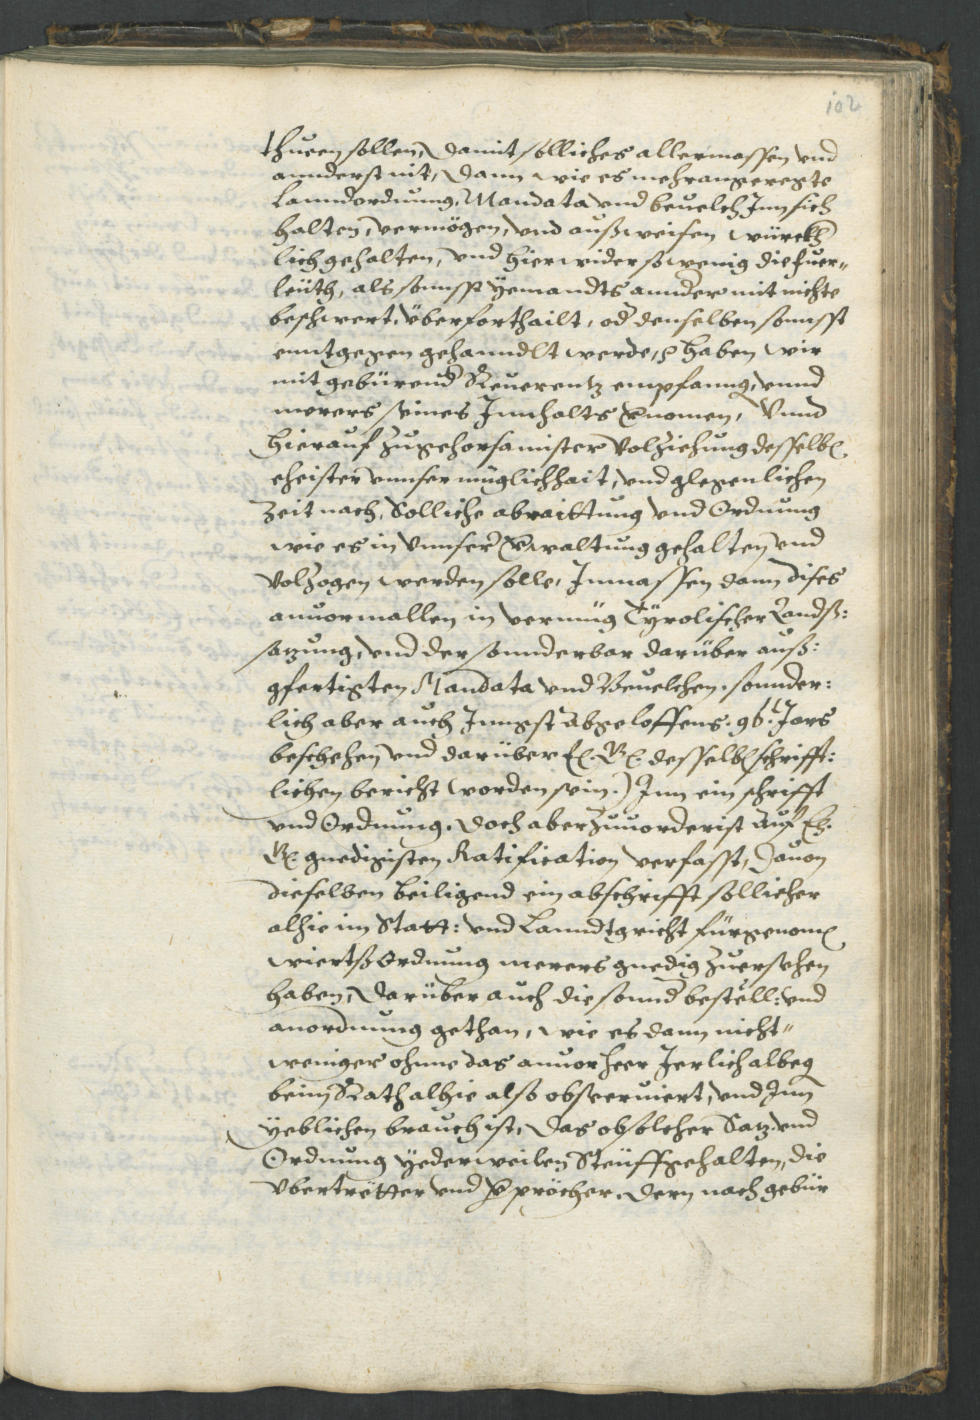 102
thueen sollen, damit solliches allermassen vnd
annderst nit, dann wie es mehrangeregte
Lanndordnung, Mandata vnd beuelch Inn sich
halten, vermögen, vnd außweisen würckh
lich gehalten, vnd hierwider so wenig die fuer-
leüth, als sonnst yemandts annder mit nichte
beschwert, überforthailt, od denselben sonnsst
enntgegen gehanndlt werde, haben wir
mit gebürend Reuerentz empfanng, vnnd
merers seines Innhalts vnomen, Vnnd
hierauf zu gehorsamister volziehung desselb
eheister vnnser müglichhait, vnd glegenlichen
Zeit nach, Solliche abraittung vnd Ordnung
wie es in vnnser vwaltung gehalten vnd
volzogen werden solle, Inmassen dann dises
anuormallen in vermüg Tyrolischer Landß:
satzung, vnd der sonnderbar darüber auß:
gfertigten Mandata vnd Beuelchen. sonnder:
lich aber auch Jüngst abgeloffens. 96. Jars
beschehen vnd darüber E. G. desselb schrifft:
lichen bericht worden sein.) Inn ein schrifft
vnd Ordnung. doch aber zuuorderist auf E.
G. gnedigisten Ratification verfasst, dauon
dieselben beiligend ein abschrifft sollicher
alhie im Statt: vnd Lanndtgricht fürgenom
wiertß Ordnung merers gnedig zuersehen
haben, darüber auch die sonnd bestöll: vnd
anordnung gethan, wie es dann nicht-
weniger ohne das anuor heer Jerlich albeg
beim Rath alhie also obseruiert, vnd Inn
yeblichen brauch ist, das ob solcher Satz vnd
Ordnung yederweilen Steüff gehalten, die
vbertrötter vnd vpröcher. dern nach gebür